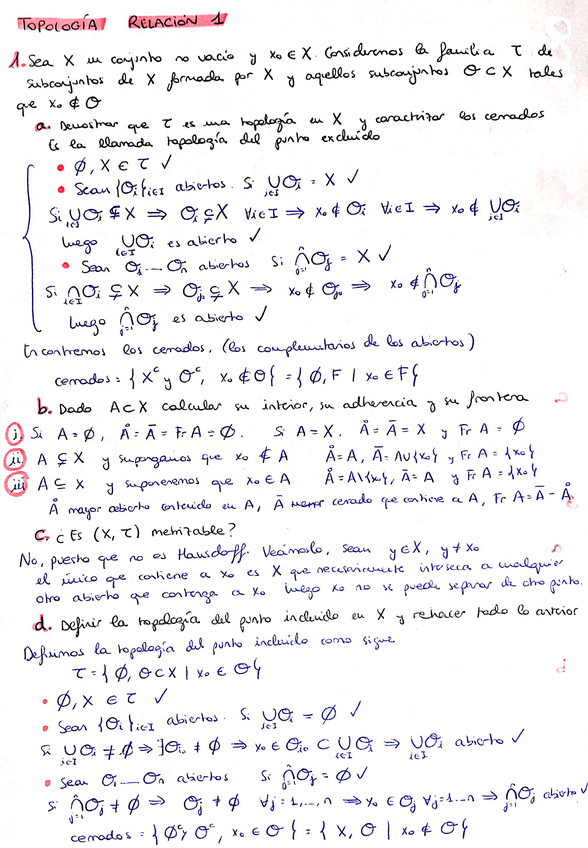 TOPOLOGÍA RELACIÓN 1
1. Sea X un conjunto no vacío y x₀ ∈ X. Consideremos la familia τ de
subconjuntos de X formada por X y aquellos subconjuntos O ⊂ X tales
que x₀ ∉ O
a. Demostrar que τ es una topología en X y caracterizar los cerrados
Es la llamada topología del punto excluido
• ∅, X ∈ τ ✓
• Sean {Oᵢ}ᵢ∈I abiertos. Si ∪ᵢ∈I Oᵢ = X ✓
Si ∪ᵢ∈I Oᵢ ⊊ X ⇒ Oᵢ ⊊ X ∀i∈I ⇒ x₀ ∉ Oᵢ ∀i∈I ⇒ x₀ ∉ ∪ᵢ∈I Oᵢ
luego ∪ᵢ∈I Oᵢ es abierto ✓
• Sean O₁ ... Oₙ abiertos Si ∩ⁿⱼ₌₁ Oⱼ = X ✓
Si ∩ᵢ∈I Oᵢ ⊊ X ⇒ Oⱼ₀ ⊊ X ⇒ x₀ ∉ Oⱼ₀ ⇒ x₀ ∉ ∩ⁿⱼ₌₁ Oⱼ
luego ∩ⁿⱼ₌₁ Oⱼ es abierto ✓
Encontremos los cerrados, (los complementarios de los abiertos)
cerrados = { Xᶜ y Oᶜ, x₀ ∉ O } = { ∅, F | x₀ ∈ F }
b. Dado A ⊂ X calcular su interior, su adherencia y su frontera
i. Si A = ∅, Å = Ā = Fr A = ∅. Si A = X. Å = Ā = X y Fr A = ∅
ii. A ⊊ X y supongamos que x₀ ∉ A Å = A, Ā = A∪{x₀}, y Fr A = {x₀}
iii. A ⊆ X y suponemos que x₀ ∈ A Å = A\{x₀}, Ā = A y Fr A = {x₀}
Å mayor abierto contenido en A, Ā menor cerrado que contiene a A, Fr A = Ā - Å
c. ¿Es (X, τ) metrizable?
No, puesto que no es Hausdorff. Veámoslo, sean y ∈ X, y ≠ x₀
el único que contiene a x₀ es X que necesariamente interseca a cualquier
otro abierto que contenga a x₀ luego x₀ no se puede separar de otro punto.
d. Definir la topología del punto incluido en X y rehacer todo lo anterior
Definimos la topología del punto incluido como sigue
τ = { ∅, O ⊂ X | x₀ ∈ O }
• ∅, X ∈ τ ✓
• Sean {Oᵢ}ᵢ∈I abiertos. Si ∪ᵢ∈I Oᵢ = ∅ ✓
Si ∪ᵢ∈I Oᵢ ≠ ∅ ⇒ ∃Oᵢ₀ ≠ ∅ ⇒ x₀ ∈ Oᵢ₀ ⊂ ∪ᵢ∈I Oᵢ ⇒ ∪ᵢ∈I Oᵢ abierto ✓
• Sean O₁ ... Oₙ abiertos Si ∩ⁿⱼ₌₁ Oⱼ = ∅ ✓
Si ∩ⁿⱼ₌₁ Oⱼ ≠ ∅ ⇒ Oⱼ ≠ ∅ ∀j=1,...,n ⇒ x₀ ∈ Oⱼ ∀j=1...n ⇒ ∩ⁿⱼ₌₁ Oⱼ abierto ✓
cerrados = { ∅ᶜ y Oᶜ, x₀ ∈ O } = { X, O | x₀ ∉ O }